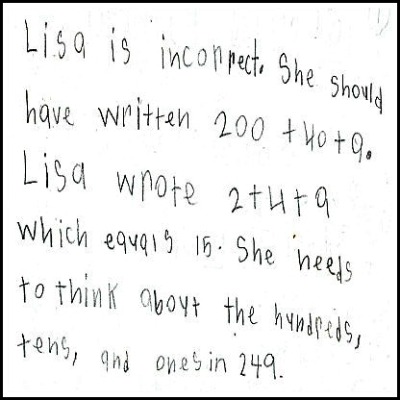 Lisa is incorrect. She should
have written 200 + 40 + 9.
Lisa wrote 2+4+9
which equals 15. She needs
to think about the hundreds,
tens, and ones in 249.